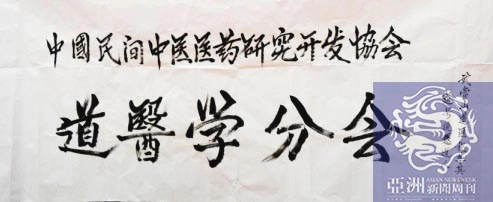 中國民间中医医药研究开发協会
道醫学分会
亞洲
ASIAN NEWSWEEK
新聞周刊